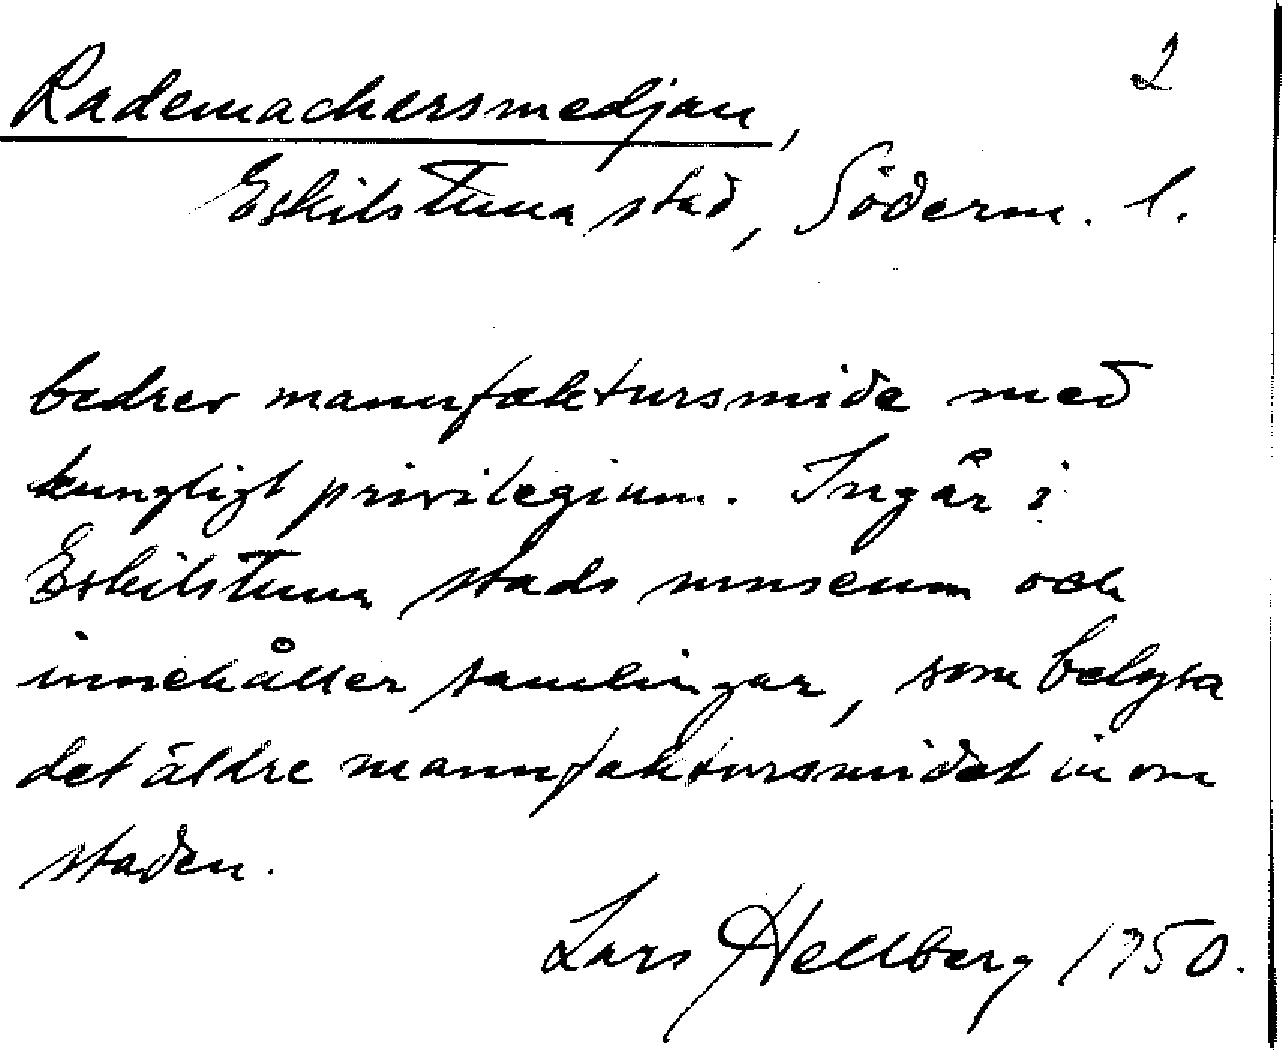 2
Rademachersmedjan,
Eskilstuna stad, Söderm. l.
bedrev manufaktursmide med
kungligt privilegium. Ingår i
Eskilstuna stads museum och
innehåller samlingar, som belysa
det äldre manufaktursmidet inom
staden.
Lars Hellberg 1950.